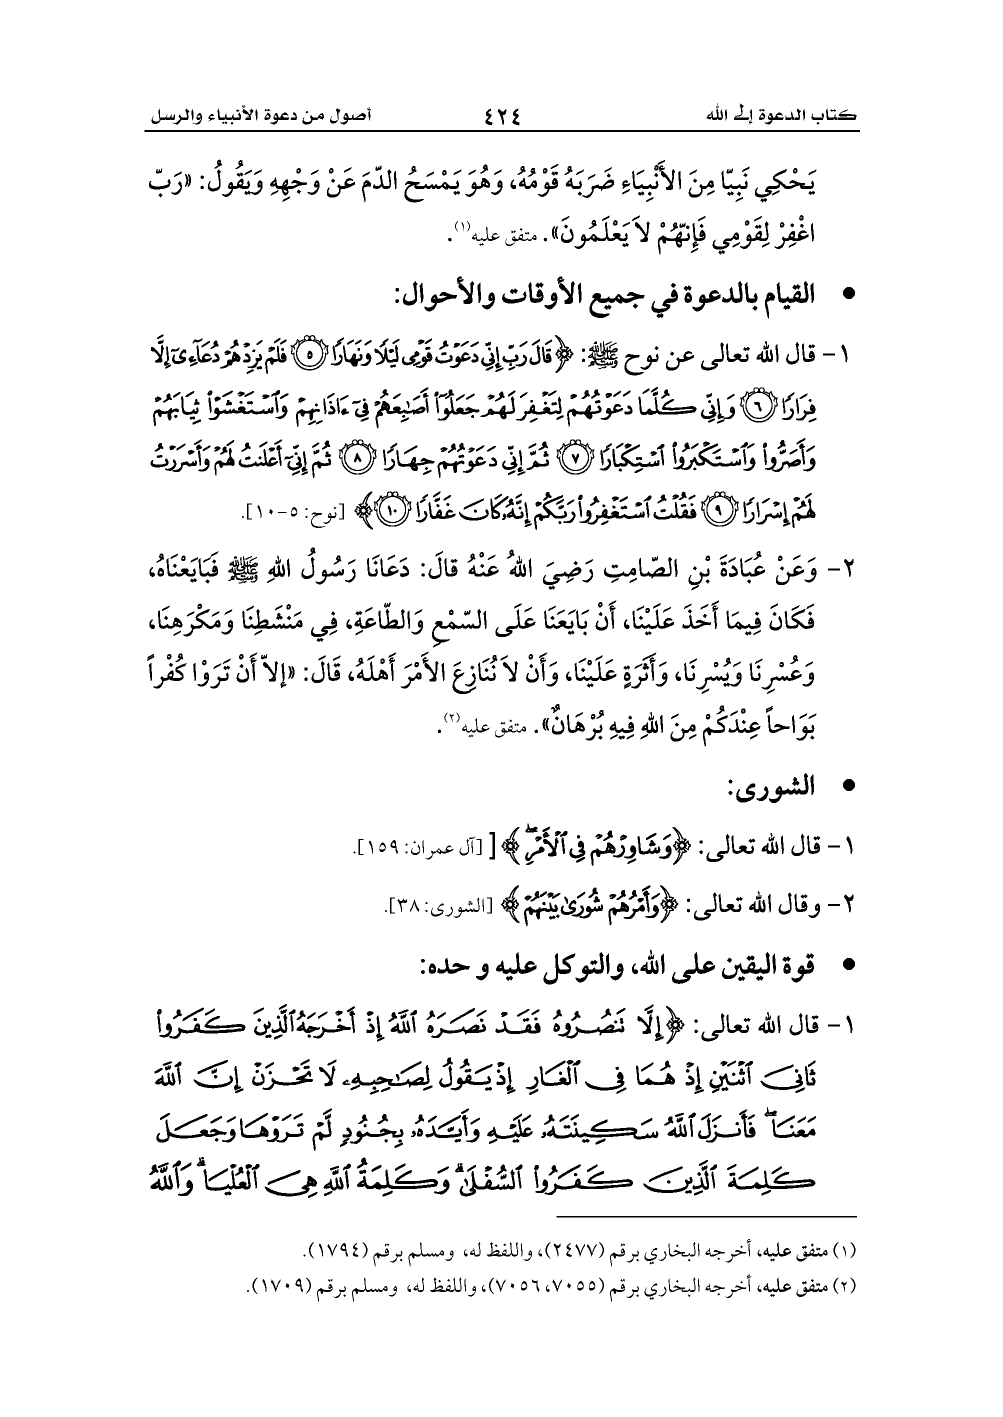 كتاب الدعوة إلى الله ٤٢٤ أصول من دعوة الأنبياء والرسل
يَحْكِي نَبِيّاً مِنَ الأَنْبِيَاءِ ضَرَبَهُ قَوْمُهُ، وَهُوَ يَمْسَحُ الدّمَ عَنْ وَجْهِهِ وَيَقُولُ: «رَبّ
اغْفِرْ لِقَوْمِي فَإِنّهُمْ لاَ يَعْلَمُونَ». متفق عليه(١).
• القيام بالدعوة في جميع الأوقات والأحوال:
١- قال الله تعالى عن نوح ﷺ: ﴿قَالَ رَبِّ إِنِّي دَعَوْتُ قَوْمِي لَيْلًا وَنَهَارًا ٥ فَلَمْ يَزِدْهُمْ دُعَآءِيٓ إِلَّا
فِرَارًا ٦ وَإِنِّي كُلَّمَا دَعَوْتُهُمْ لِتَغْفِرَ لَهُمْ جَعَلُوٓا۟ أَصَٰبِعَهُمْ فِيٓ ءَاذَانِهِمْ وَٱسْتَغْشَوْا۟ ثِيَابَهُمْ
وَأَصَرُّوا۟ وَٱسْتَكْبَرُوا۟ ٱسْتِكْبَارًا ٧ ثُمَّ إِنِّي دَعَوْتُهُمْ جِهَارًا ٨ ثُمَّ إِنِّيٓ أَعْلَنتُ لَهُمْ وَأَسْرَرْتُ
لَهُمْ إِسْرَارًا ٩ فَقُلْتُ ٱسْتَغْفِرُوا۟ رَبَّكُمْ إِنَّهُۥ كَانَ غَفَّارًا ١٠﴾ [نوح: ٥-١٠].
٢- وَعَنْ عُبَادَةَ بْنِ الصّامِتِ رَضِيَ اللهُ عَنْهُ قالَ: دَعَانَا رَسُولُ اللهِ ﷺ فَبَايَعْنَاهُ،
فَكَانَ فِيمَا أَخَذَ عَلَيْنَا، أَنْ بَايَعَنَا عَلَى السّمْعِ وَالطّاعَةِ، فِي مَنْشَطِنَا وَمَكْرَهِنَا،
وَعُسْرِنَا وَيُسْرِنَا، وَأَثَرَةٍ عَلَيْنَا، وَأَنْ لاَ نُنَازِعَ الأَمْرَ أَهْلَهُ، قَالَ: «إلاّ أَنْ تَرَوْا كُفْراً
بَوَاحاً عِنْدَكُمْ مِنَ اللهِ فِيهِ بُرْهَانٌ». متفق عليه(٢).
• الشورى:
١- قال الله تعالى: ﴿وَشَاوِرْهُمْ فِي ٱلْأَمْرِۖ﴾ [ [آل عمران: ١٥٩].
٢- وقال الله تعالى: ﴿وَأَمْرُهُمْ شُورَىٰ بَيْنَهُمْ﴾ [الشورى: ٣٨].
• قوة اليقين على الله، والتوكل عليه و حده:
١- قال الله تعالى: ﴿إِلَّا تَنصُرُوهُ فَقَدْ نَصَرَهُ ٱللَّهُ إِذْ أَخْرَجَهُ ٱلَّذِينَ كَفَرُوا۟
ثَانِيَ ٱثْنَيْنِ إِذْ هُمَا فِي ٱلْغَارِ إِذْ يَقُولُ لِصَٰحِبِهِۦ لَا تَحْزَنْ إِنَّ ٱللَّهَ
مَعَنَاۖ فَأَنزَلَ ٱللَّهُ سَكِينَتَهُۥ عَلَيْهِ وَأَيَّدَهُۥ بِجُنُودٍ لَّمْ تَرَوْهَا وَجَعَلَ
كَلِمَةَ ٱلَّذِينَ كَفَرُوا۟ ٱلسُّفْلَىٰۗ وَكَلِمَةُ ٱللَّهِ هِيَ ٱلْعُلْيَاۗ وَٱللَّهُ
(١) متفق عليه، أخرجه البخاري برقم (٢٤٧٧)، واللفظ له، ومسلم برقم (١٧٩٤).
(٢) متفق عليه، أخرجه البخاري برقم (٧٠٥٥، ٧٠٥٦)، واللفظ له، ومسلم برقم (١٧٠٩).